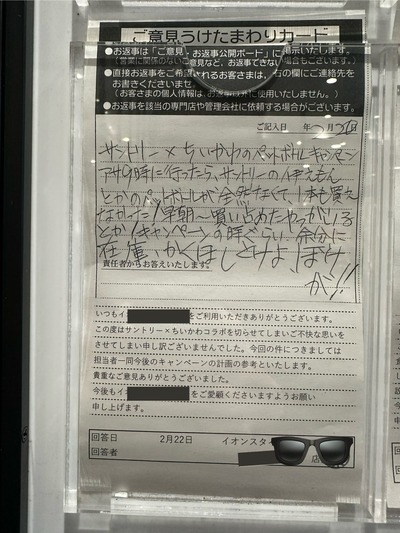 ご意見うけたまわりカード
●お返事は「ご意見・お返事公開ボード」に掲示いたします。
(営業に関係のないご意見など、お返事できない場合もございます。)
●直接お返事をご希望されるお客さまは、右の欄にご連絡先を
お書きくださいませ
(お客さまの個人情報は、お返事以外に使用いたしません。)
●お返事を該当の専門店や管理会社に依頼する場合がございます。
ご記入日 年 2月21日
サントリー×ちいかわのペットボトルキャンペーン
アサ9時に行ったら、サントリーの伊えもん
とかのペットボトルが全然なくて、1本も買え
なかった!早朝〜買い占めたやつがいる
とか!キャンペーンの時ぐらい、余分に
在庫、かくほしとけよ、ぼけ
が!!
責任者からお答えいたします。
いつもイ をご利用いただきありがとうございます。
この度はサントリー×ちいかわコラボを切らせてしまいご不快な思いを
させてしまい申し訳ございませんでした。今回の件につきましては
担当者一同今後のキャンペーンの計画の参考といたします。
貴重なご意見ありがとうございました。
今後もイ をご愛顧くださいますようお願い
申し上げます。
回答日 2月22日 イオンスタ
回答者 店